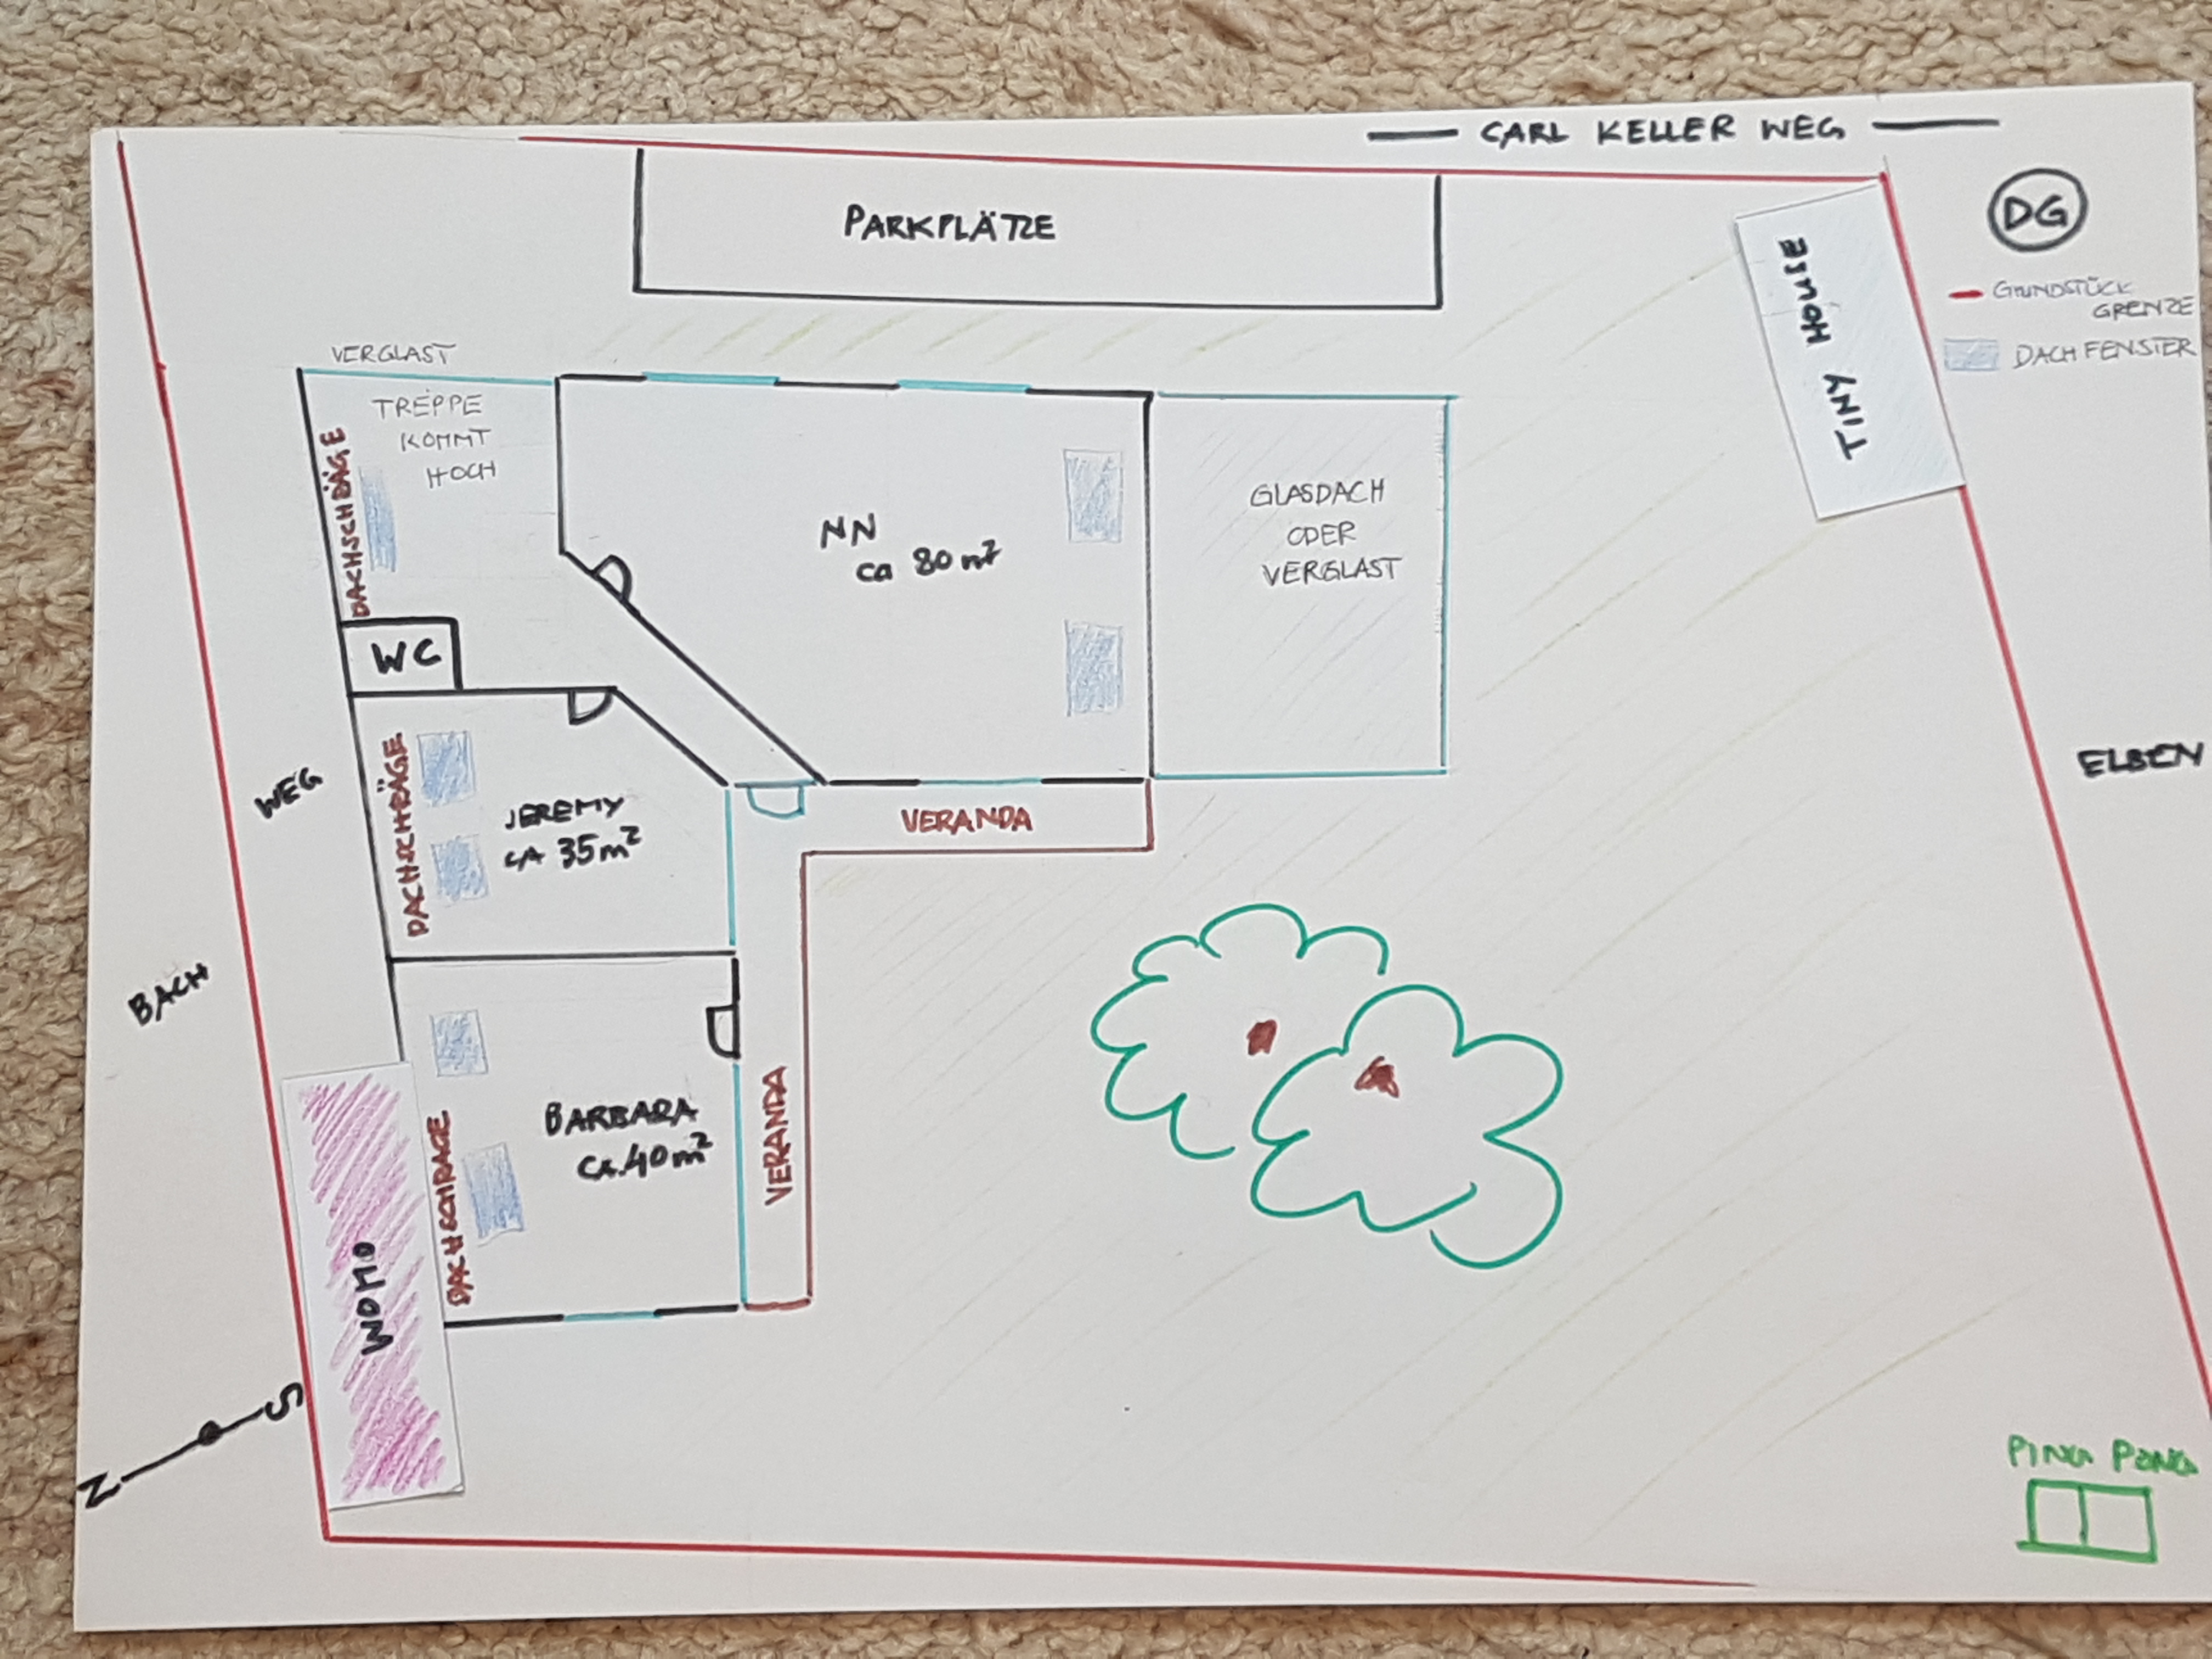 CARL KELLER WEG
DG
GRUNDSTÜCK
GRENZE
DACHFENSTER
PARKPLÄTZE
TINY HOUSE
VERGLAST
TREPPE
KOMMT
HOCH
DACHSCHRÄGE
WC
NN
ca 80 m²
GLASDACH
ODER
VERGLAST
WEG
DACHSCHRÄGE
JEREMY
CA 35 m²
VERANDA
ELBEN
BACH
BARBARA
CA. 40 m²
VERANDA
DACHSCHRAGE
WOMO
S
N
PING PONG